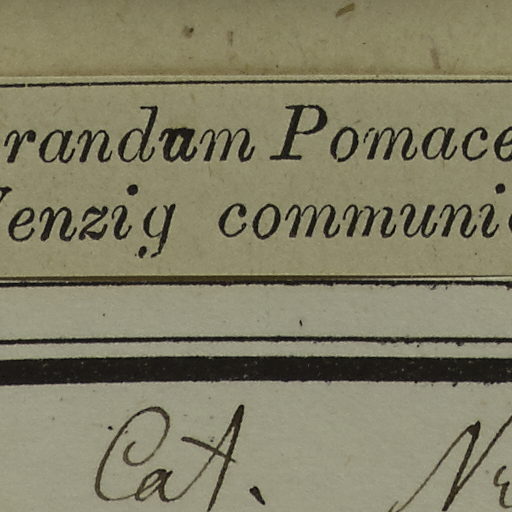 randum Pomace
enzig communi
Cat. Ne